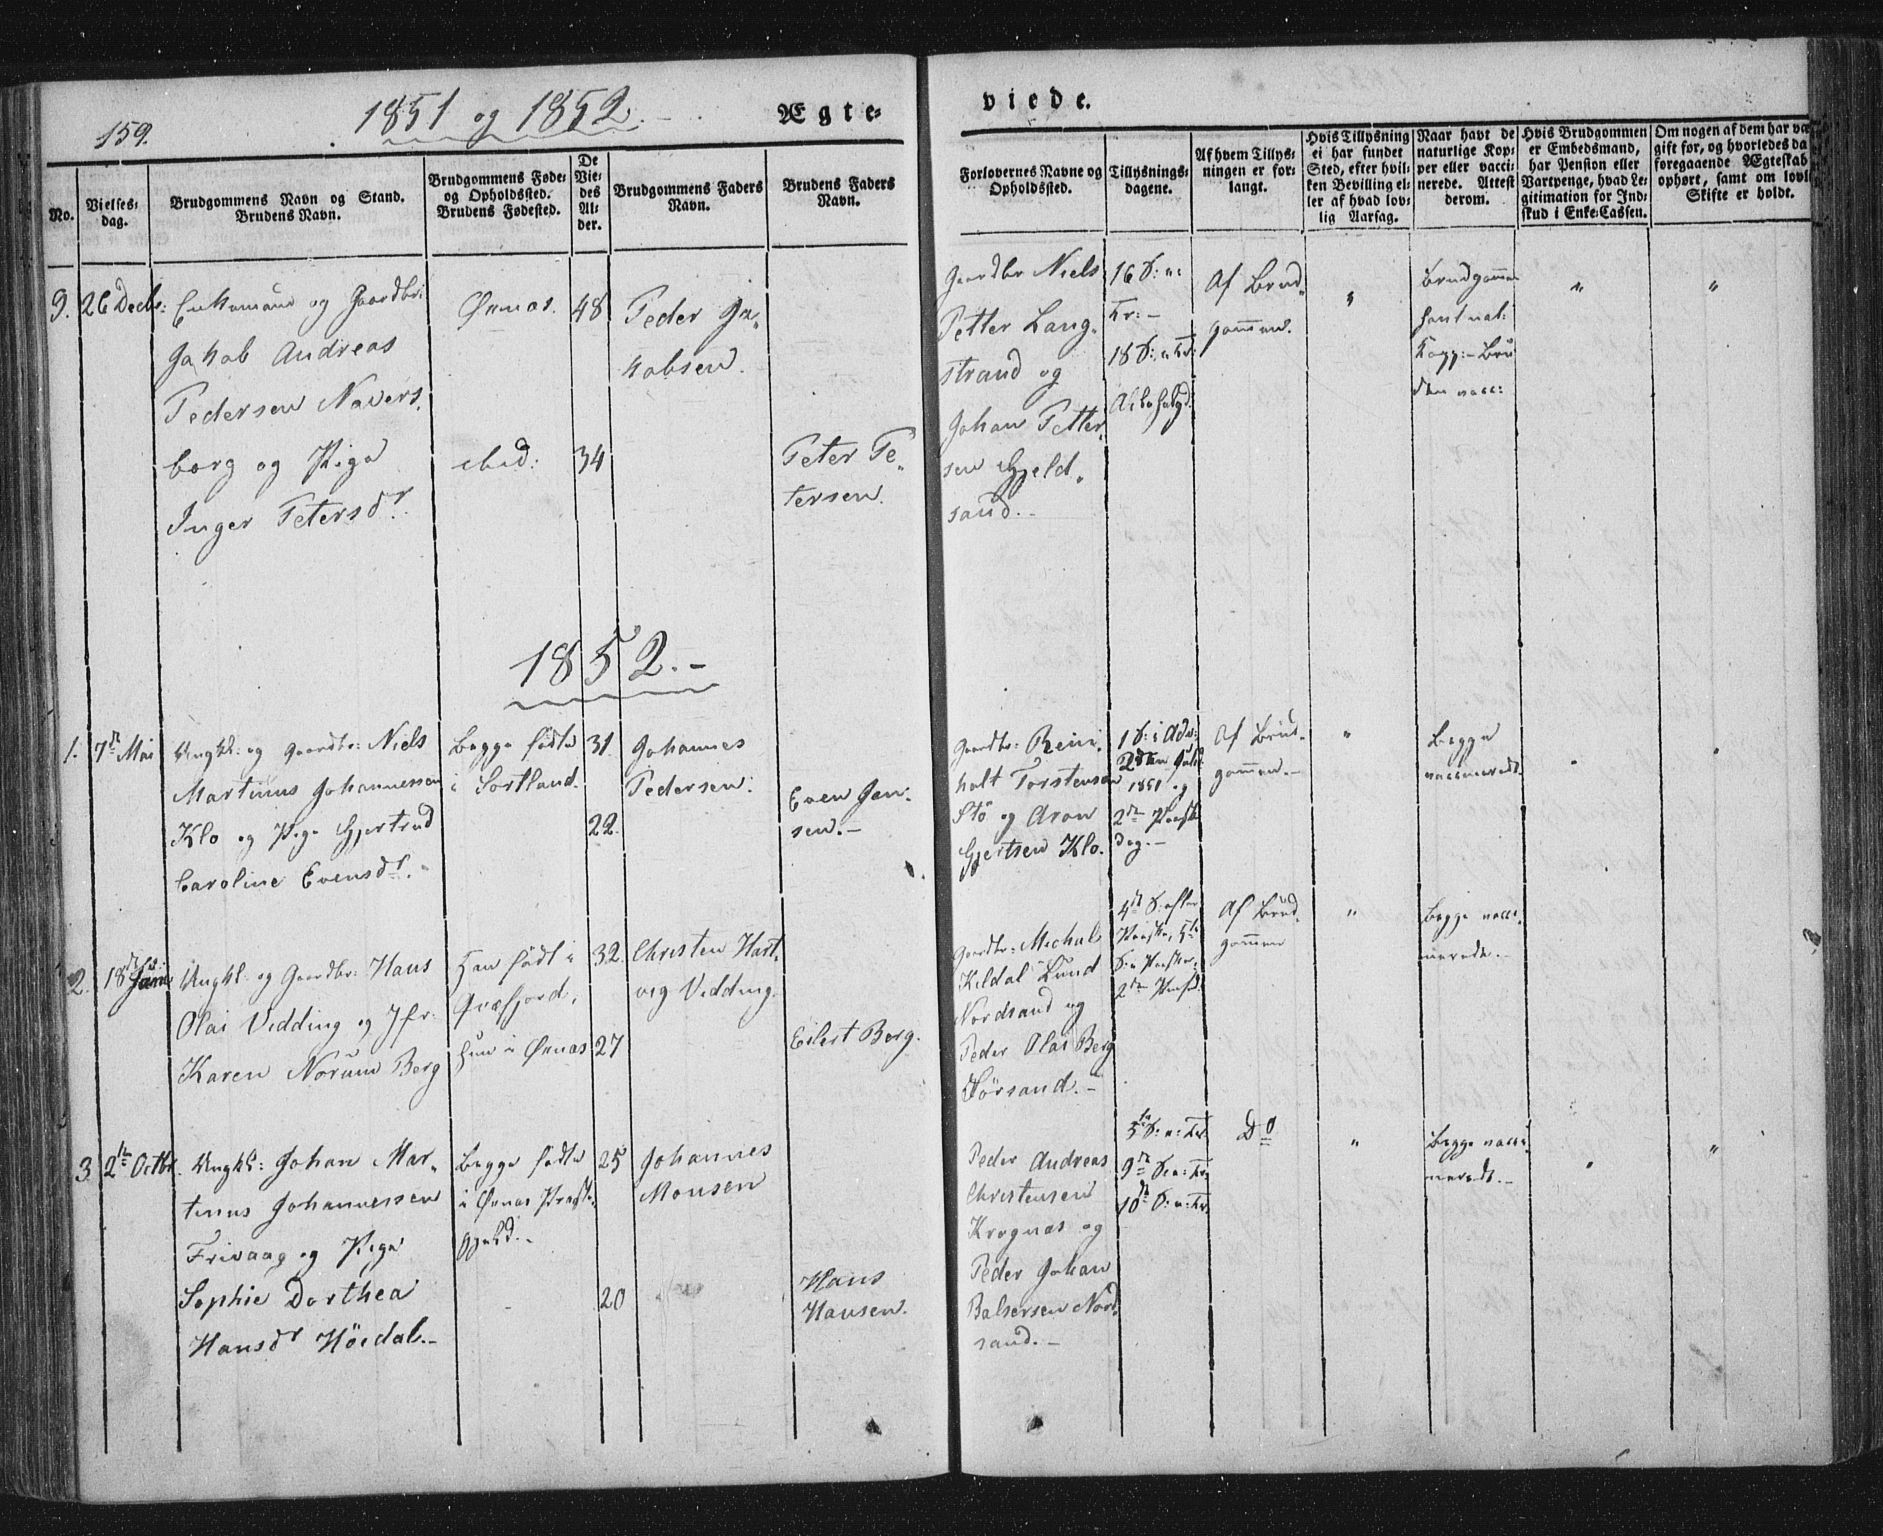 159.
1851 og 1852.
Ægte-
viede.
No.
Vielses-
dag.
Brudgommens Navn og Stand.
Brudens Navn.
Brudgommens Føde-
og Opholdssted.
Brudens Fødested.
De
Vie-
des
Al-
der.
Brudgommens Faders
Navn.
Brudens Faders
Navn.
Forlovernes Navne og
Opholdssted.
Tillysnings-
dagene.
Af hvem Tillys-
ningen er for-
langt.
Hvis Tillysning
ei har fundet
Sted, efter hvil-
ken Bevilling el-
ler af hvad lov-
lig Aarsag.
Naar havt de
naturlige Kop-
per eller vacci-
nerede. Attest
derom.
Hvis Brudgommen
er Embedsmand,
har Pension eller
Vartpenge, hvad Le-
gitimation for Ind-
skud i Enke-Cassen.
Om nogen af dem har væ
gift før, og hvorledes da
foregaaende Ægteskab
ophørt, samt om lovl
Skifte er holdt.
9. 26 Decbr:
Enkemand og Gaardbr:
Jakob Andreas
Pedersen Navers-
borg og Pige
Inger Petersdr.
Øxnæs.
ibid:
48
34
Peder Ja-
kobsen.
Peter Pe-
tersen.
Gaardbr Niels
Petter Lang-
strand og
Johan Petter-
sen Gjeld-
sand.
16 S: n:
Tr:
18 S: n Tr:
Af Brud-
gommen.
"
Brudgommen
havt nat:
Kopp: Bru
den vacc:
"
"
1852.
1. 7de Mai
Ungkl: og Gaardbr: Niels
Martinus Johannessen
Klo og Pige Gjertrud
Caroline Evensdr.
Begge fødte
i Sortland.
31.
22.
Johannes
Pedersen.
Even Jan-
sen.
Gaardbr: Rein-
holt Torstensen
Stö og Aron
Gjertsen Klo.
1 S: i Adv:
2den Jule
1851 og
2den Paaske
dag.
Af Brud-
gommen.
"
Begge
vaccinerede.
"
2. 18de Juni
Ungkl: og Gaardbr: Hans
Olai Vedding og Jfr:
Karen Norum Berg
Han født i
Qvæfjord,
hun i Øxnæs
32.
27
Christen Hart-
vig Vedding.
Eilert Berg.
Gaardbr: Michal
Kildal Lund
Nordsand og
Peder Olai Berg
Törsand.
4de S: efter
Paaske, 5te
S: e Paaske
2den
Af Brud-
gommen
"
Begge vacci-
nerede.
3. 2den Octbr.
Ungkl: Johan Mar-
tinus Johannessen
Frivaag og Pige
Sophie Dorthea
Hansdr Höidal.
Begge fødte
i Øxnæs Præste-
gjeld.
25
20
Johannes
Monsen
Hans
Hansen.
Peder Andreas
Christensen
Krognæs og
Peder Johan
Balsersen Nord-
sand.
9de S: n: Tr.
10de S: n: Tr.
Do
"
Begge vacci-
nerede.
"
"